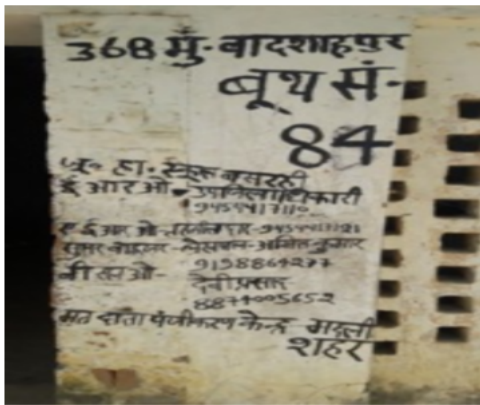 368 मुं- बादशाहपुर
बूथ सं-
84
जू० हा० स्कूल बसरही
ई आर ओ- उपजिलाधिकारी
9454417110
ए ई आर ओ-तहसीलदार-
सुपर वाइजर-लेखपाल-अमित कुमार
9198864277
बी एल ओ- देवी प्रसाद
8874005652
मत दाता पंजीकरण केन्द्र मछली
शहर